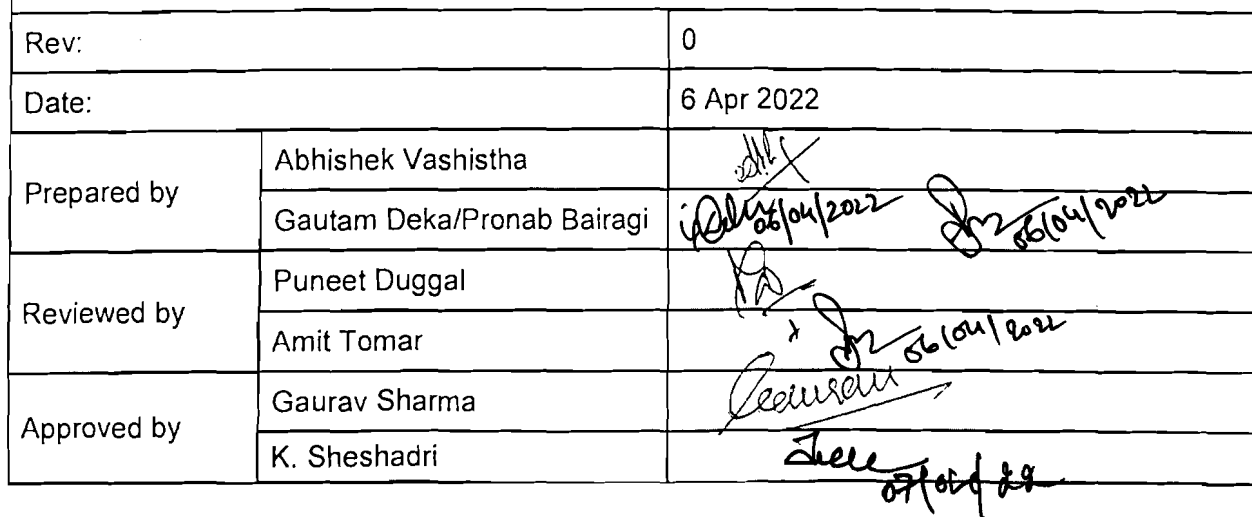 Rev: 0
Date: 6 Apr 2022
Prepared by
Abhishek Vashistha
Gautam Deka/Pronab Bairagi 06/04/2022 06/04/2022
Reviewed by
Puneet Duggal
Amit Tomar 06/04/2022
Approved by
Gaurav Sharma
K. Sheshadri 07/04/22